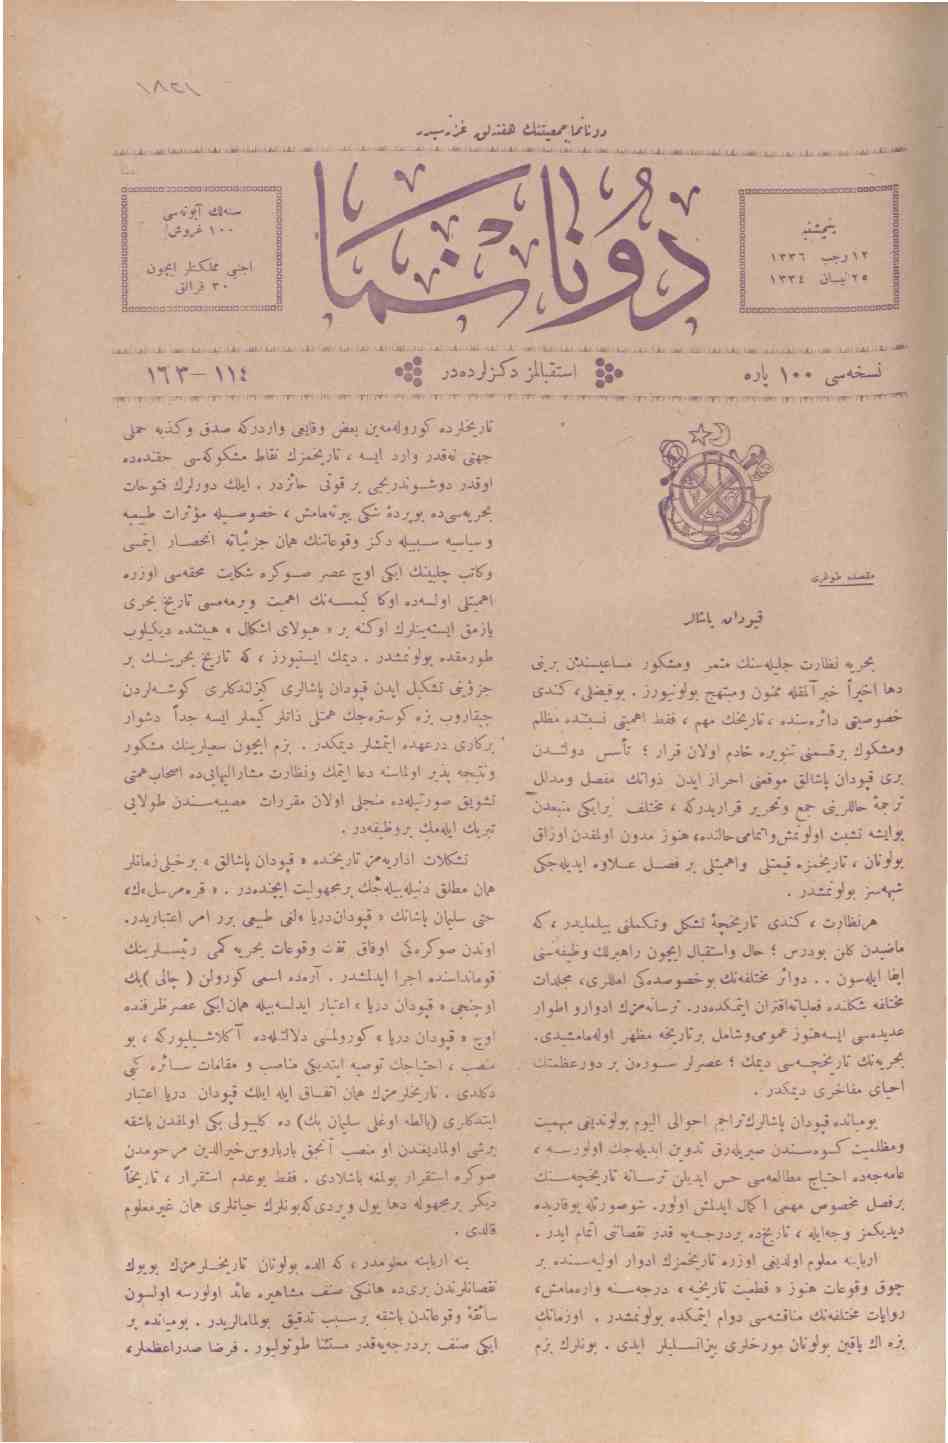 ١٨٢١
دونانما جمعیتنك هفته‌لق غزته‌سیدر
پنجشنبه
١٢ رجب ١٣٣٦
٢٥ نیسان ١٣٣٤
دونانما
سنه‌لك آبونه‌سی
١٠٠ غروش
اجنبی مملكتلر ایچون
٣٠ فرانق
نسخه‌سی ١٠٠ پاره
استقبالمز دكزلرده‌در
١١٤ — ١٦٣
مقصده طوغری
قپودان پاشالر
بحریه نظارت جلیله‌سنك مثمر ومشكور مساعیسندن برینی
دها اخیراً خبر آلمقله ممنون ومبتهج بولونیورز . بوفیضلی، كندی
خصوصیتی دائره‌سنده ، تاریخك مهم ، فقط اهمیتی نسبتنده مظلم
ومشكوك برقسمنی تنویره خادم اولان قرار ؛ تأسس دولتدن
بری قپودان پاشالق موقعنی احراز ایدن ذواتك مفصل ومدلل
ترجمهٔ حاللرینی جمع وتحریر قراریدركه ، مختلف برایكی منبعدن
بوایشه تشبث اولونمش واتمامی حالنده، هنوز مدون اولمقدن اوزاق
بولونان ، تاریخمزه قیمتلی واهمیتلی بر فصل علاوه ایدیله‌جكی
شبهه‌سز بولونمشدر .
هرنظارت ، كندی تاریخچهٔ تشكل وتكملنی بیلملیدر ، كه
ماضیدن كلن بودرس ؛ حال واستقبال ایچون راهبرلك وظیفه‌سنی
ایفا ایله‌سون . . دوائر مختلفه‌نك بوخصوصده‌كی امللری، مجلدات
مختلفه شكلنده فعلیاته اقتران ایتمكده‌در. ترسانه‌مزك ادوار و اطوار
عدیده‌سی ایسه هنوز عمومی وشامل برتاریخه مظهر اوله‌مامشیدی.
بحریه‌نك تاریخچه‌سی دیمك ؛ عصرلر سوره‌ن بر دور عظمتك
احیای مفاخری دیمكدر .
بومیانده قپودان پاشالرك تراجم احوالی الیوم بولوندیغی مبهمیت
ومظلمیت كسوه‌سندن صیریله‌رق تدوین ایدیله‌جك اولورسه ،
عامه‌جه‌ده احتیاج مطالعه‌سی حس ایدیلن ترسانه تاریخچه‌سنك
برفصل مخصوص مهمی اكمال ایدلمش اولور. شوصورتله یوقاریده
دیدیكمز وجه‌ایله ، تاریخده بردرجه‌یه قدر نقصاننی اتمام ایدر .
اربابنه معلوم اولدیغی اوزره تاریخمزك ادوار اولیه‌سنده بر
چوق وقوعات هنوز « قطعیت تاریخیه » درجه‌سنه وارەمامش،
روایات مختلفه‌نك مناقشه‌سی دوام ایتمكده بولونمشدر . اوزمانك
بزه اك یاقین بولونان مورخلری بیزانسلیلر ایدی . بونلرك بزم
تاریخلرده كورولەمەین بعض وقایعی واردركه صدق وكذبه حملی
جهتی نه‌قدر وارد ایسه ، تاریخمزك نقاط مشكوكه‌سی حقنده‌ده
اوقدر دوشوندریجی بر قوتی حائزدر . ایلك دورلرك فتوحات
بحریه‌سی‌ده بوپردهٔ شكی ییرتەمامش ، خصوصیله مؤثرات طبیعیه
و سیاسیه سببیله دكز وقوعاتنك همان جزئیاته انحصار ایتمسی
وكاتب چلبینك ایكی اوچ عصر صوكره شكایت محقه‌سی اوزره
اهمیتلی اولسه‌ده اوكا كیمسه‌نك اهمیت ویرمەمسی تاریخ بحری
یازمق ایسته‌ینلرك اوكنه بر « هیولای اشكال » هیئتنده دیكیلوب
طورمقده بولونمشدر . دیمك ایستیورز ، كه تاریخ بحرینك بر
جزؤینی تشكیل ایدن قپودان پاشالری كیزلندكلری كوشه‌لردن
چیقاروب بزه كوستره‌جك همتلی ذاتلر كیملر ایسه جداً دشوار
بركاری درعهده ایتمشلر دیمكدر . بزم ایچون سعیلرینك مشكور
ونتیجه پذیر اولماسنه دعا ایتمك ونظارت مشارالیهایی‌ده اصحاب همتی
تشویق صورتیله‌ده منجلی اولان مقررات مصیبه‌سندن طولایی
تبریك ایله‌مك بروظیفه‌در .
تشكلات اداریه‌مز تاریخنده « قپودان پاشالق » برخیلی زمانلر
همان مطلق دنیله‌بیله‌جك برمجهولیت ایچنده‌در . « قره‌مرسل »ك،
حتی سلیمان پاشانك « قپودان دریا »لغی طبیعی برر امر اعتباریدر.
اوندن صوكره‌كی اوفاق تفك وقوعات بحریه كمی رئیسلرینك
قوماندا‌سنده اجرا ایدلمشدر . آرەده اسمی كورولن ( چالی )بك
اوچنجی « قپودان دریا » اعتبار ایدلسه‌بیله همان ایكی عصر ظرفنده
اوچ « قپودان دریا » كورولمسی دلالتله‌ده آكلاشیلیوركه ، بو
منصب ، احتیاجك توصیه ایتدیكی مناصب و مقامات سائره كبی
دكلدی . تاریخلرمزك همان اتفاق ایله ایلك قپودان دریا اعتبار
ایتدكلری (بالطه اوغلی سلیمان بك) ده كلیبولی بكی اولمقدن باشقه
برشی اولمادیغندن او منصب آنجق بارباروس خیرالدین مرحومدن
صوكره استقرار بولمغه باشلادی . فقط بوعدم استقرار ، تاریخاً
دیكر برمجهوله دها یول ویردی كه بونلرك حیاتلری همان غیرمعلوم
قالدی .
ینه اربابنه معلومدر ، كه الده بولونان تاریخلرمزك بویوك
نقصانلرندن بری‌ده هانكی صنف مشاهیره عائد اولورسه اولسون
سائقهٔ وقوعاتدن باشقه برسبب تدقیق بولمامالریدر . بومیانده بر
ایكی صنف بردرجه‌یه‌قدر مستثنا طوتولیور . فرضا صدراعظملر،